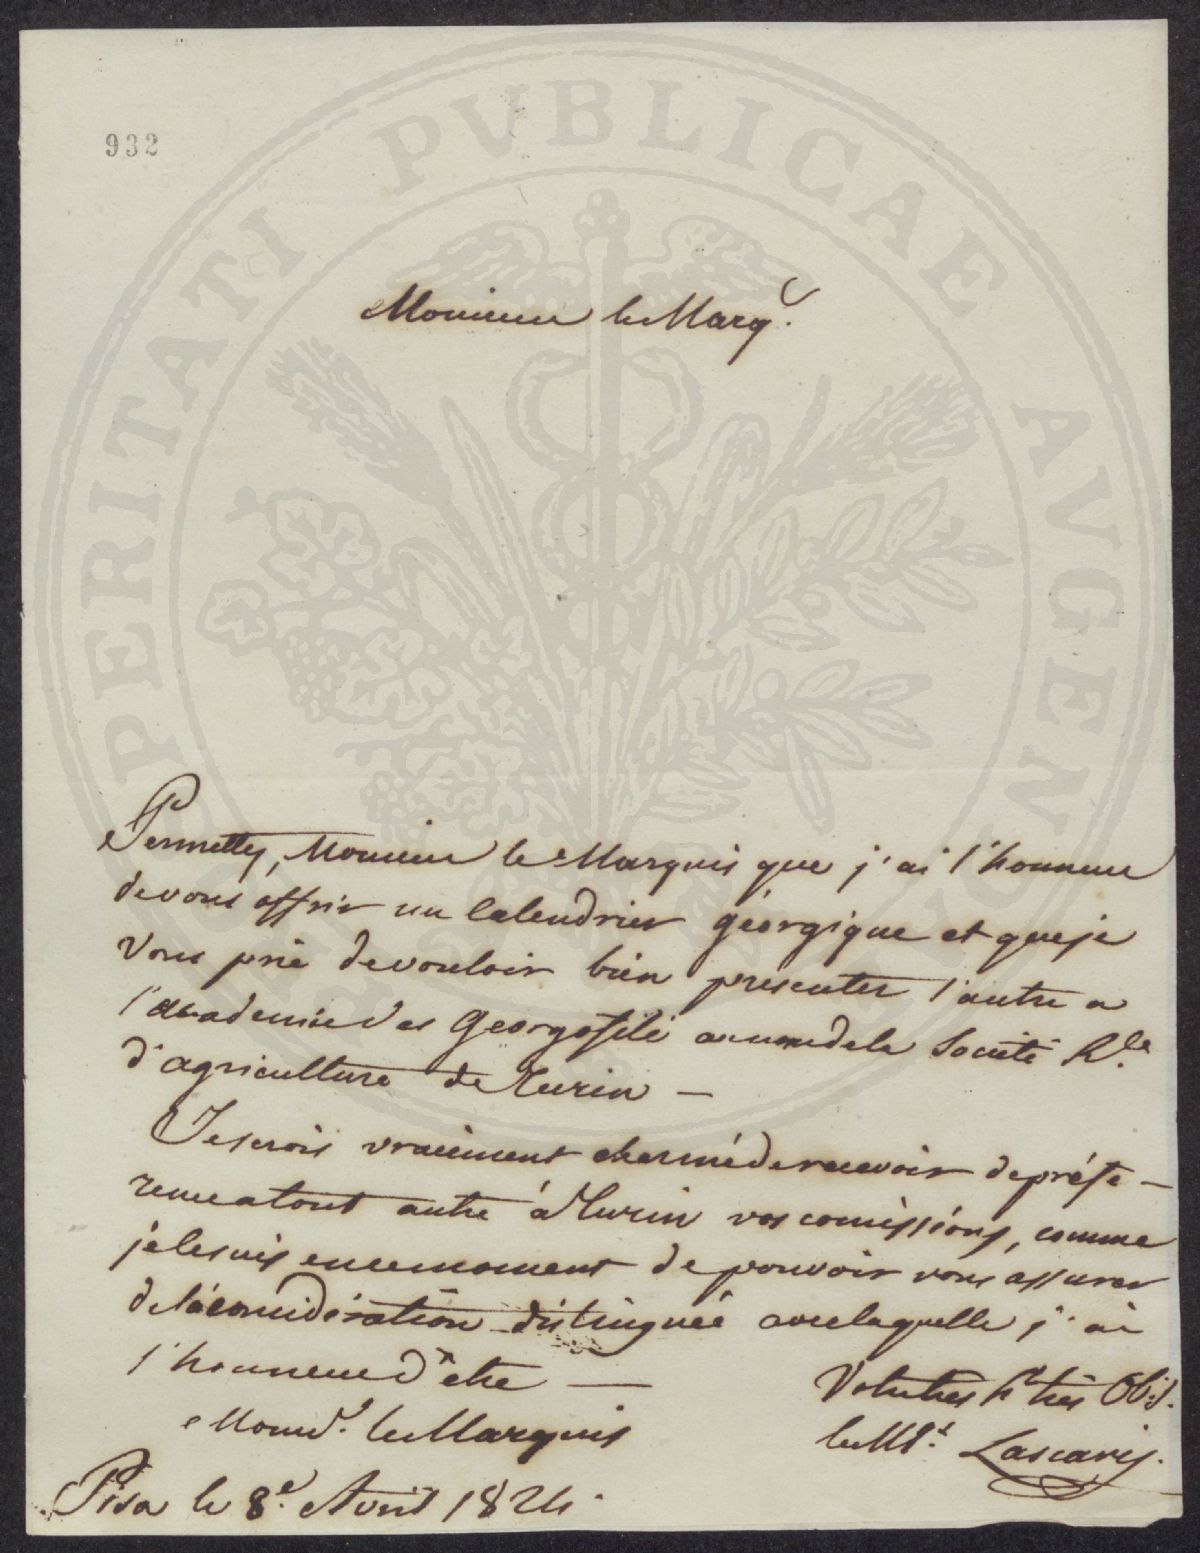 932
PROSPERITATI PUBLICAE AVGENDAE
Monsieur le Marq.
Permettez, Monsieur le Marquis que j'ai l'honneur
de vous offrir un Calendrier géorgique et que je
vous prie de vouloir bien presenter l'autre a
l'academie des Georgofili au nom de la Societé R.le
d'agriculture de Turin —
Je serois vraiment charmé de recevoir de préfe-
rence a tout autre à Turin vos comissions, comme
je le suis en ce moment de pouvoir vous assurer
de la considération distinguée avec laquelle j'ai
l'honneur d'être —
Votre très h. très Ob. S.
Mons.r le Marquis
le M.is Lascaris.
Pisa le 8.e Avril 1824.